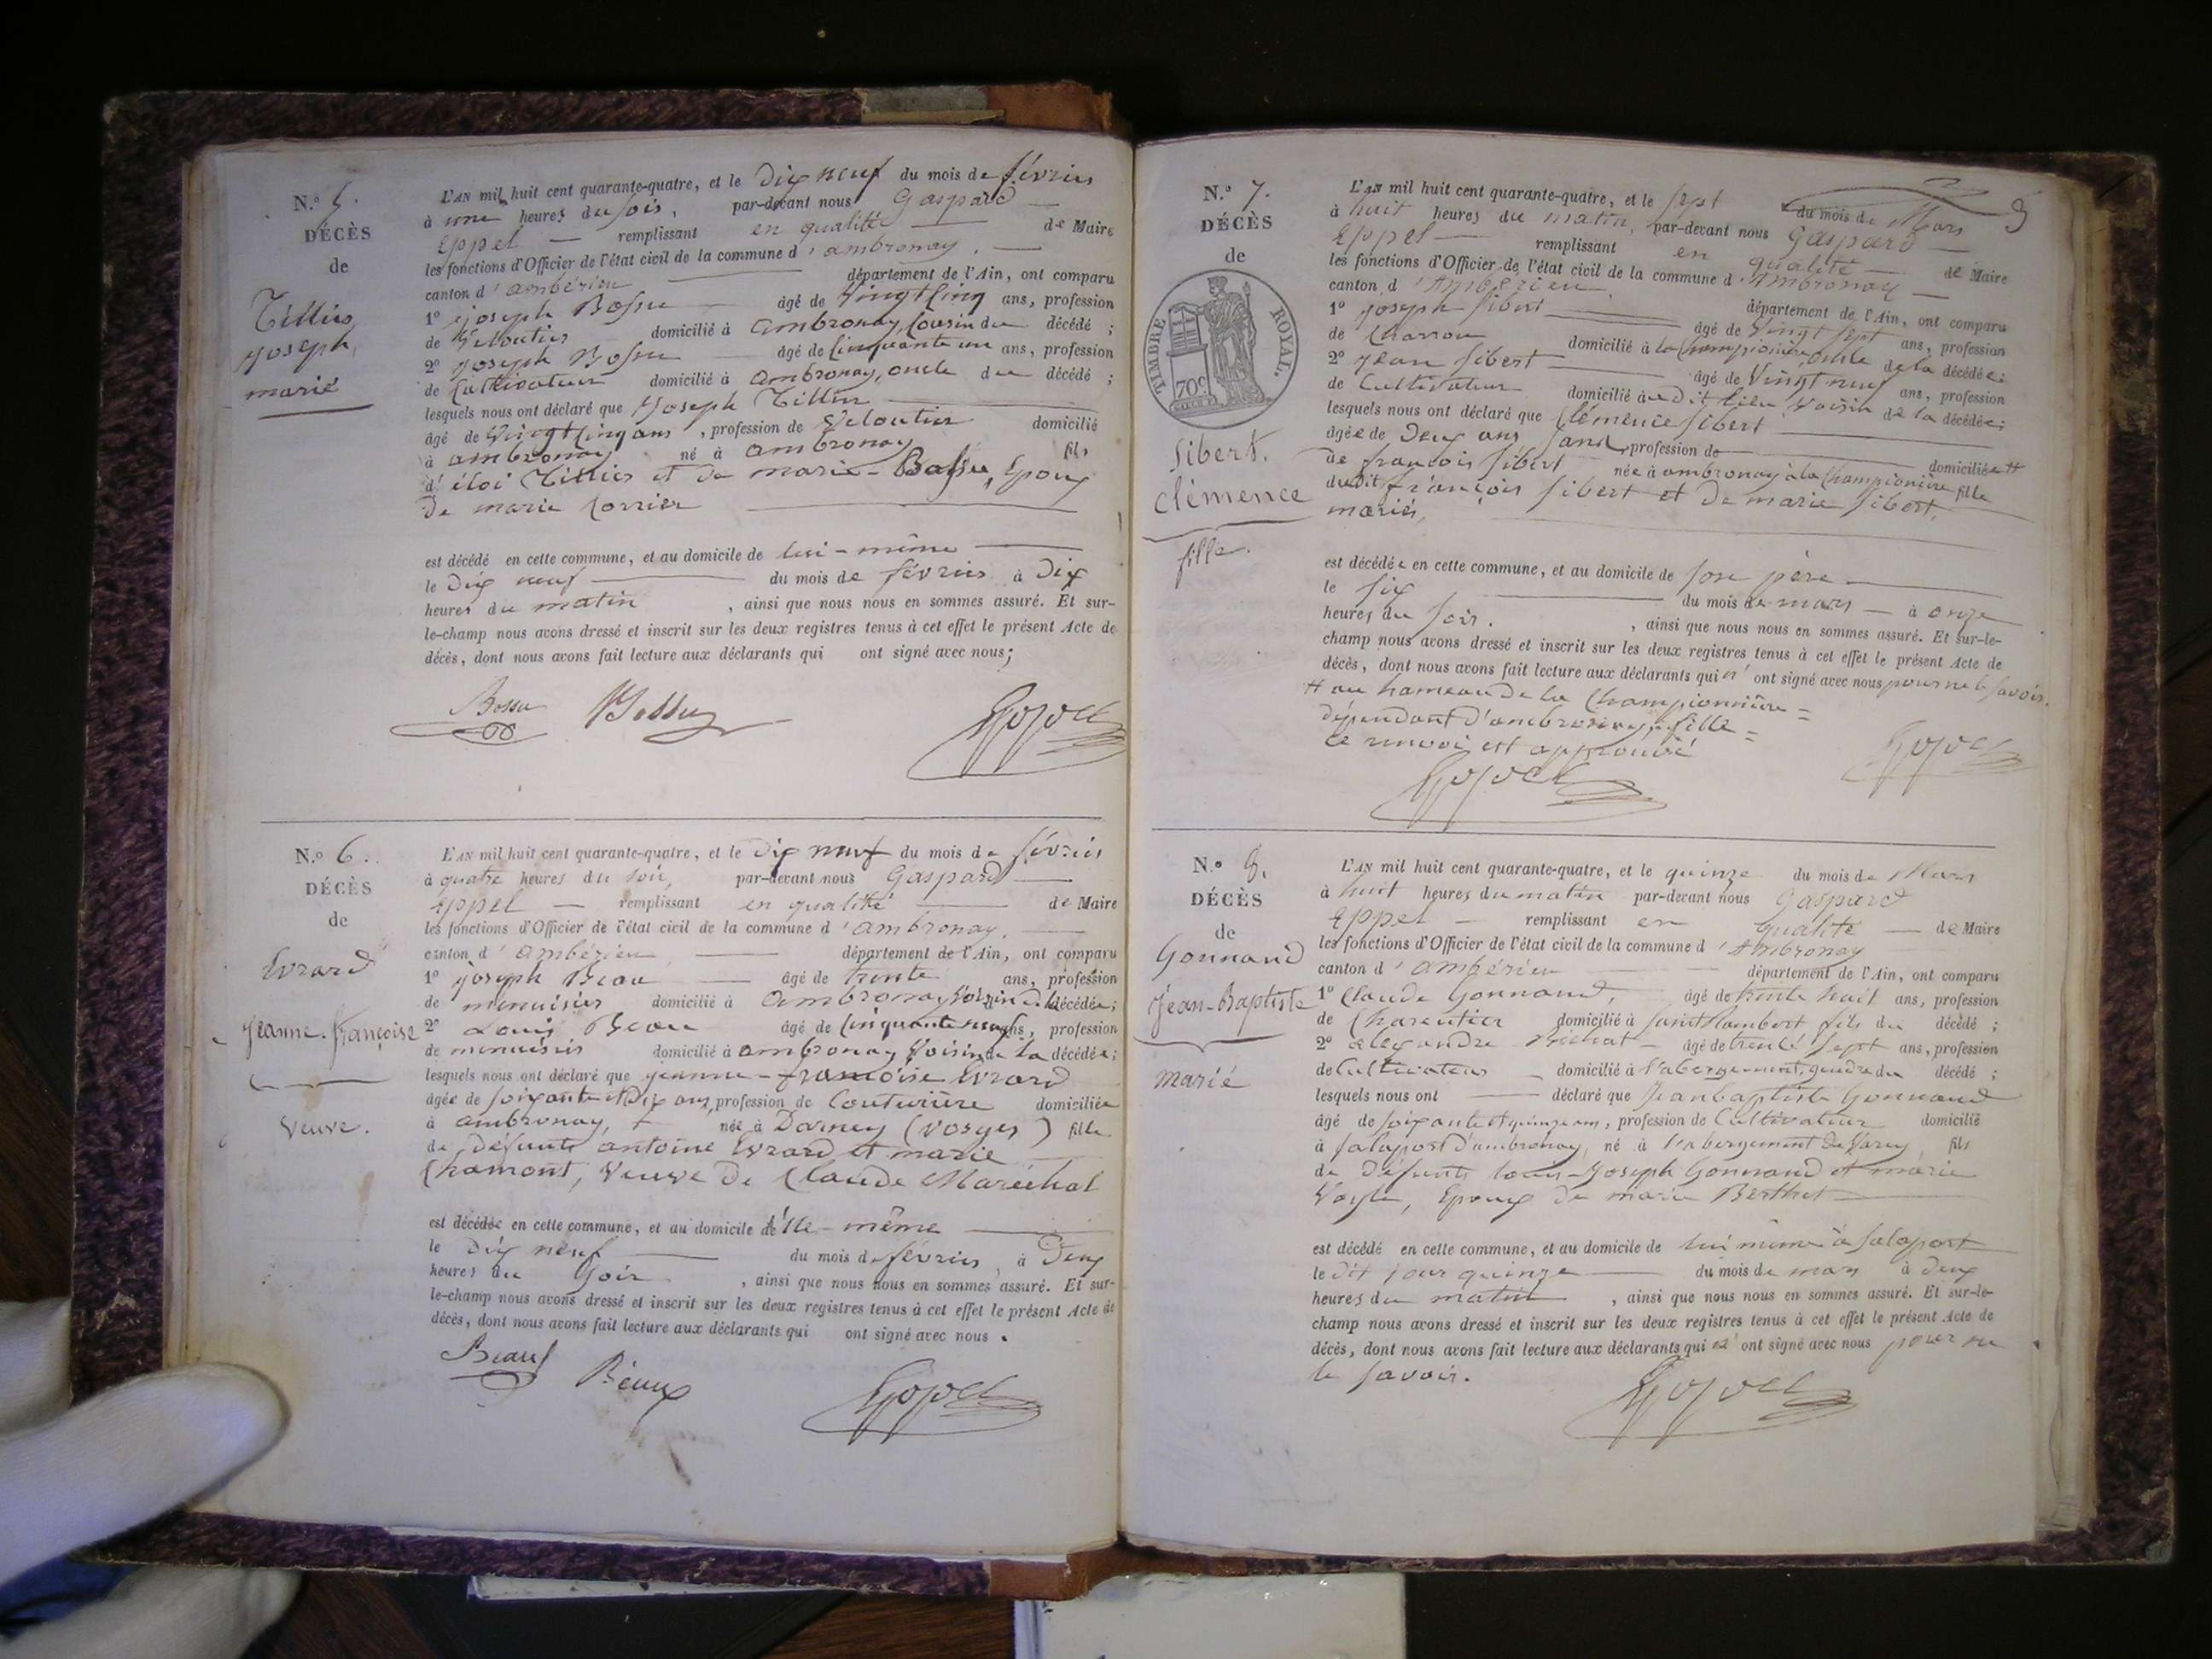 N.º 5.
DÉCÈS
de
Tillier
Joseph,
marié
L'AN mil huit cent quarante-quatre, et le dix neuf du mois de février
à une heures du soir, par-devant nous Gaspard
Eppel remplissant en qualité de Maire
les fonctions d'Officier de l'état civil de la commune d'ambronay.
canton d'ambérieu département de l'Ain, ont comparu
1º joseph Bossu âgé de vingt cinq ans, profession
de veloutier domicilié à ambronay, cousin du décédé ;
2º joseph Bossu âgé de cinquante un ans, profession
de cultivateur domicilié à ambronay, oncle du décédé ;
lesquels nous ont déclaré que joseph Tillier
âgé de vingt cinq ans, profession de veloutier domicilié
à ambronay né à ambronay fils
d'éloi Tillier et de marie Bossu, Epoux
de marie Corrier
est décédé en cette commune, et au domicile de lui-même
le dix neuf du mois de février à dix
heures du matin, ainsi que nous nous en sommes assuré. Et sur-
le-champ nous avons dressé et inscrit sur les deux registres tenus à cet effet le présent Acte de
décès, dont nous avons fait lecture aux déclarants qui ont signé avec nous;
Bossu Bossu Eppel
N.º 6.
DÉCÈS
de
Evrard
Jeanne-françoise
veuve.
L'AN mil huit cent quarante-quatre, et le dix neuf du mois de février
à quatre heures du soir, par-devant nous Gaspard
Eppel remplissant en qualité de Maire
les fonctions d'Officier de l'état civil de la commune d'ambronay.
canton d'ambérieu département de l'Ain, ont comparu
1º joseph Beau âgé de trente ans, profession
de menuisier domicilié à ambronay voisin de la décédée;
2º Louis Beau âgé de cinquante neuf ans, profession
de menuisier domicilié à ambronay voisin de la décédée;
lesquels nous ont déclaré que jeanne-françoise Evrard
âgée de soixante et dix ans, profession de couturière domiciliée
à ambronay, née à Darney (vosges) fille
de défunts antoine Evrard et marie
Chamont, veuve de Claude Maréchal
est décédée en cette commune, et au domicile d'elle-même
le dix neuf du mois de février, à deux
heures du soir, ainsi que nous nous en sommes assuré. Et sur-
le-champ nous avons dressé et inscrit sur les deux registres tenus à cet effet le présent Acte de
décès, dont nous avons fait lecture aux déclarants qui ont signé avec nous.
Beau Eppel
N.º 7.
DÉCÈS
de
TIMBRE ROYAL.
70c
Sibert.
Clémence
fille.
L'AN mil huit cent quarante-quatre, et le sept du mois de Mars
à huit heures du matin, par-devant nous Gaspard
Eppel remplissant en qualité de Maire
les fonctions d'Officier de l'état civil de la commune d'Ambronay
canton d'Ambérieu département de l'Ain, ont comparu
1º joseph Sibert âgé de vingt sept ans, profession
de charron domicilié à la Championière oncle de la décédée;
2º jean Sibert âgé de vingt neuf ans, profession
de Cultivateur domicilié au dit lieu voisin de la décédée;
lesquels nous ont déclaré que Clémence Sibert
âgée de deux ans, sans profession de domiciliée #
de françois Sibert née à ambronay à la Championière fille
dudit françois Sibert et de marie Sibert,
mariés,
est décédée en cette commune, et au domicile de son père
le six du mois de mars à onze
heures du soir, ainsi que nous nous en sommes assuré. Et sur-le-
champ nous avons dressé et inscrit sur les deux registres tenus à cet effet le présent Acte de
décès, dont nous avons fait lecture aux déclarants qui n'ont signé avec nous pour ne le savoir.
# au hameau de la Championnière =
dépendant d'ambronay, fille =
ce renvoi est approuvé
Eppel Eppel
N.º 8.
DÉCÈS
de
Gonnand
Jean-Baptiste
marié
L'AN mil huit cent quarante-quatre, et le quinze du mois de Mars
à huit heures du matin par-devant nous Gaspard
Eppel remplissant en qualité de Maire
les fonctions d'Officier de l'état civil de la commune d'Ambronay
canton d'ambérieu département de l'Ain, ont comparu
1º Claude Gonnand, âgé de trente huit ans, profession
de Charcutier domicilié à saint Rambert fils du décédé ;
2º alexandre Bichat âgé de trente sept ans, profession
de Cultivateur domicilié à l'abergement, gendre du décédé ;
lesquels nous ont déclaré que Jean baptiste Gonnand
âgé de soixante et quinze ans, profession de Cultivateur domicilié
à salaport d'ambronay, né à l'abergement de varey fils
de défunts Louis-Joseph Gonnand et marie
Vayle, Epoux de marie Berthet
est décédé en cette commune, et au domicile de lui même à salaport
le dit jour quinze du mois de mars à deux
heures du matin, ainsi que nous nous en sommes assuré. Et sur-le-
champ nous avons dressé et inscrit sur les deux registres tenus à cet effet le présent Acte de
décès, dont nous avons fait lecture aux déclarants qui n'ont signé avec nous pour ne
le savoir.
Eppel